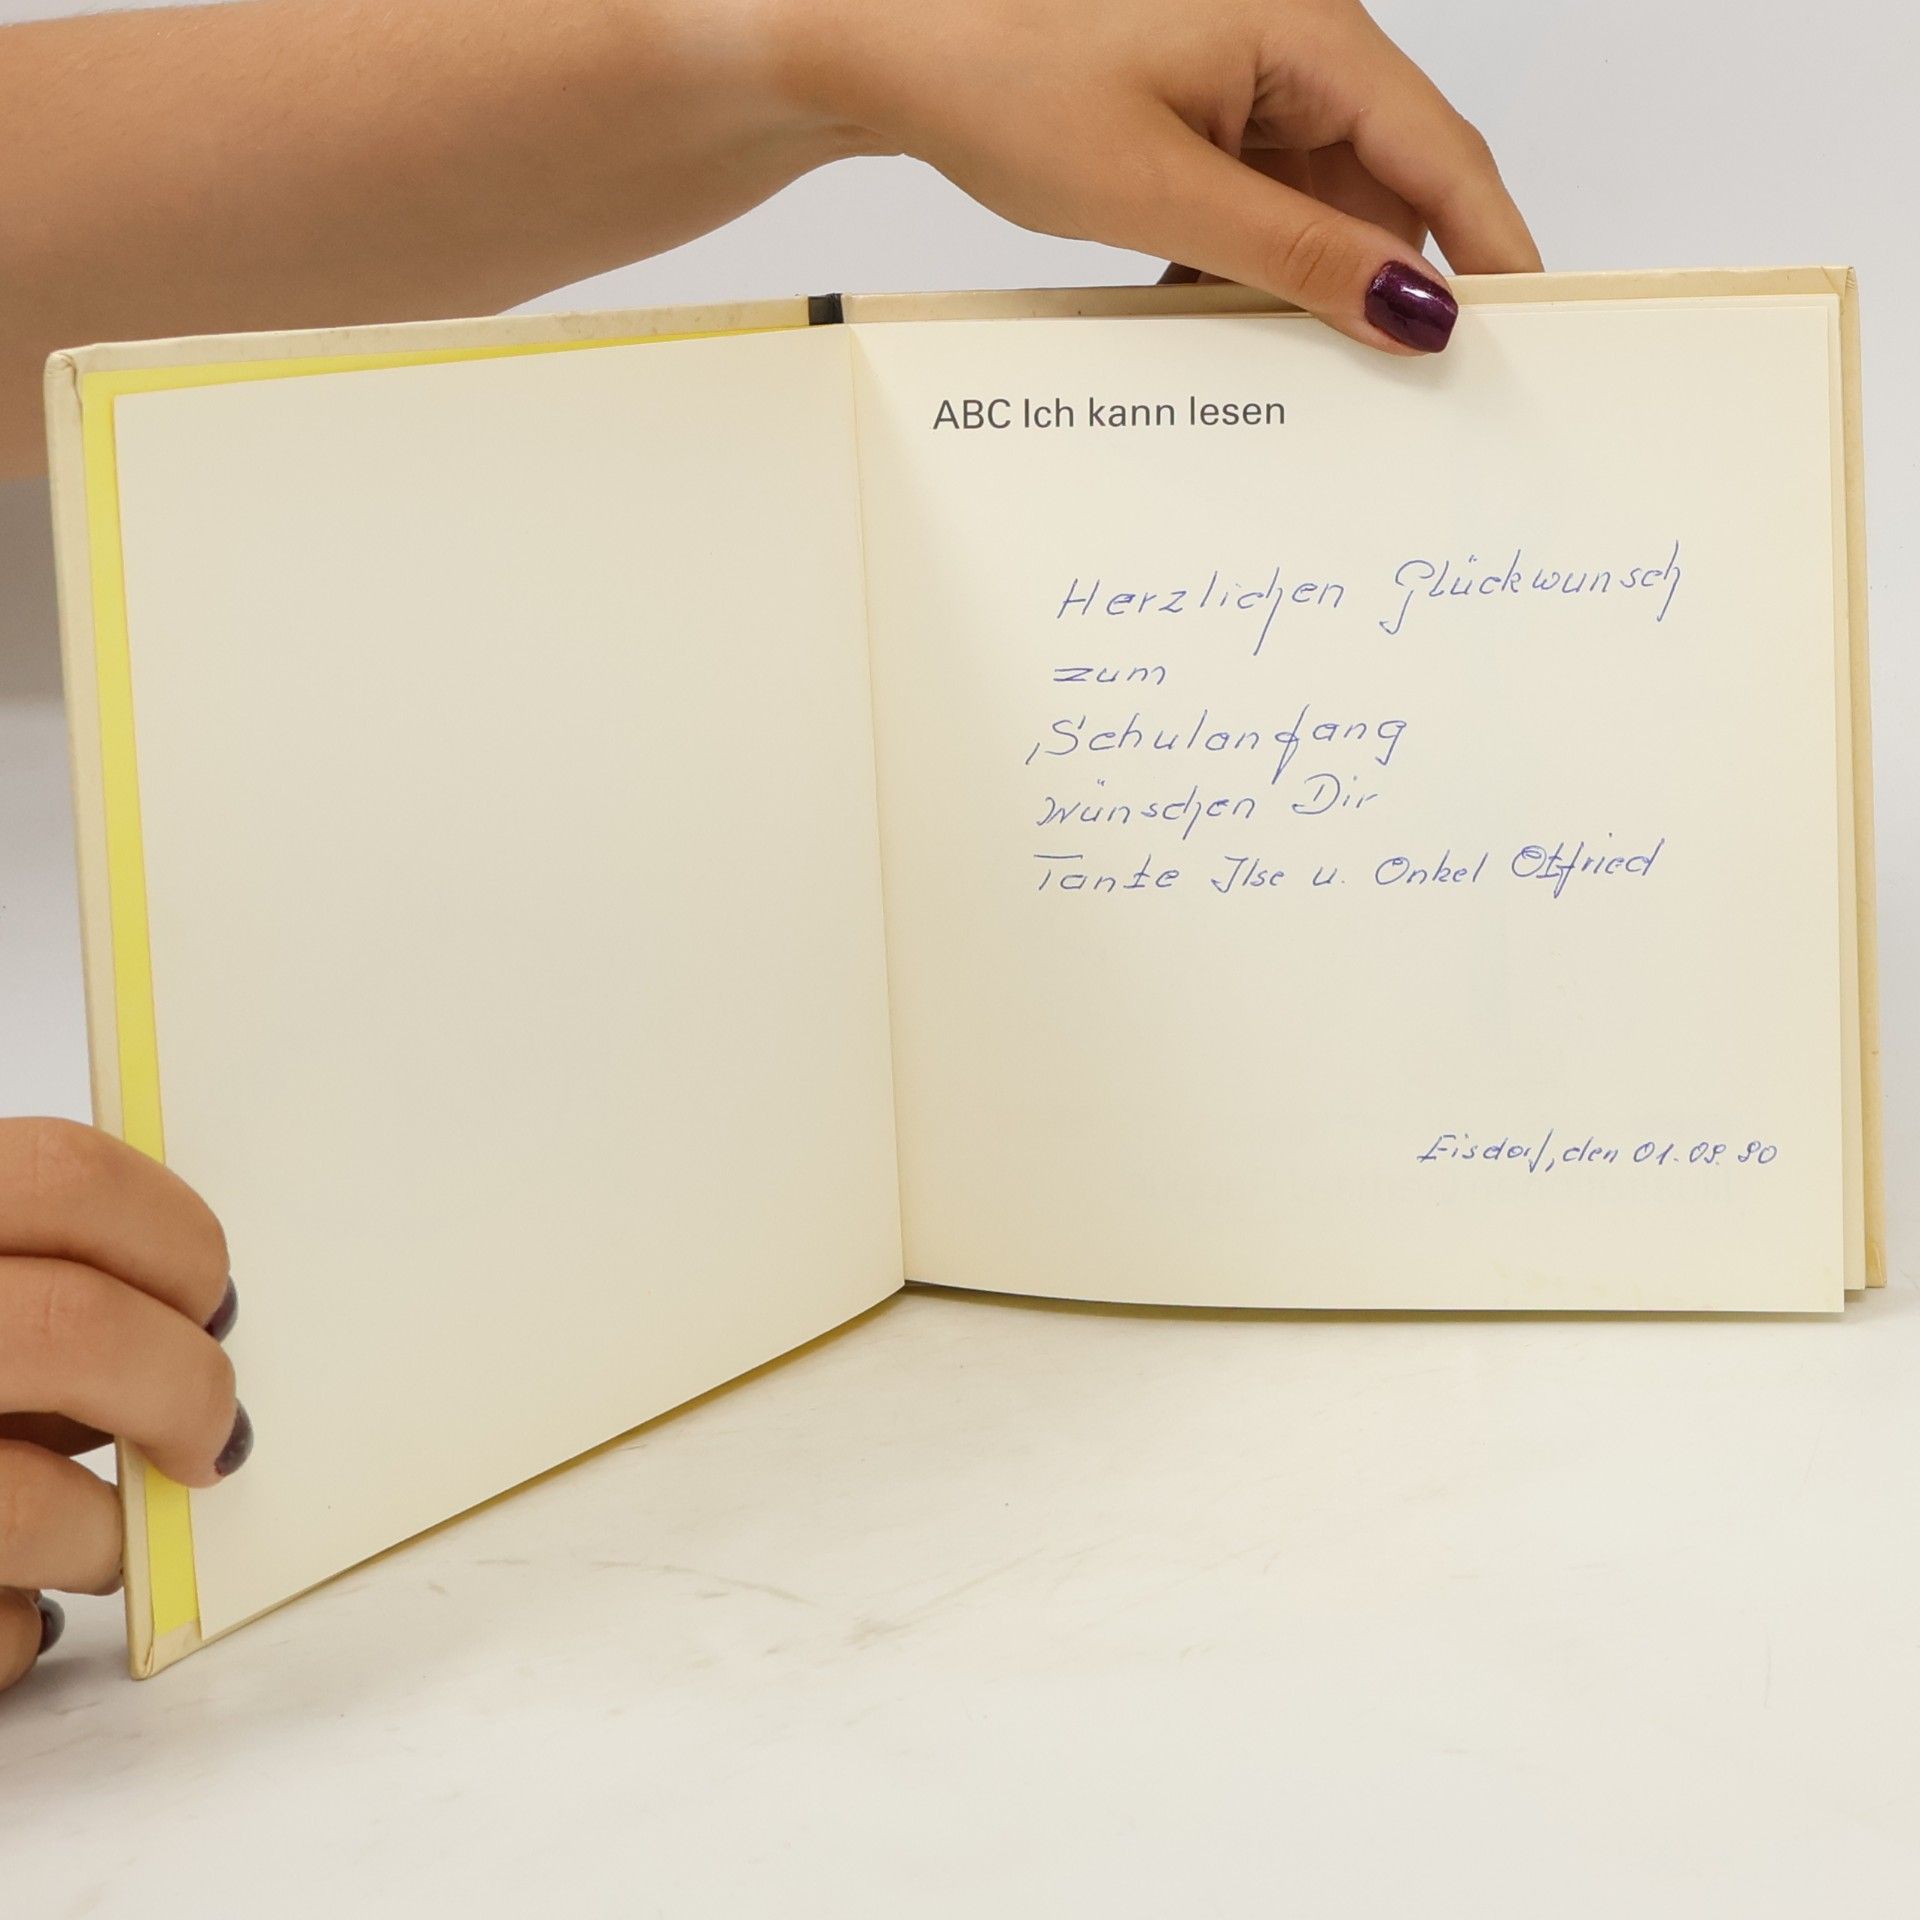 ABC Ich kann lesen
Herzlichen Glückwunsch
zum
Schulanfang
wünschen Dir
Tante Ilse u. Onkel Otfried
Eisdorf, den 01.09.90